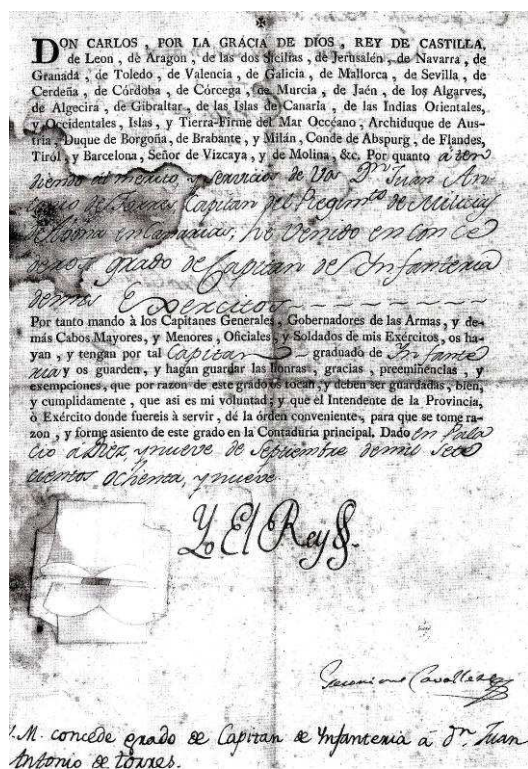 DON CARLOS, POR LA GRACIA DE DIOS, REY DE CASTILLA,
de Leon, de Aragon, de las dos Sicilias, de Jerusalén, de Navarra, de
Granada, de Toledo, de Valencia, de Galicia, de Mallorca, de Sevilla, de
Cerdeña, de Córdoba, de Córcega, de Murcia, de Jaén, de los Algarves,
de Algecira, de Gibraltar, de las Islas de Canaria, de las Indias Orientales,
y Occidentales, Islas, y Tierra-Firme del Mar Occéano, Archiduque de Aus-
tria, Duque de Borgoña, de Brabante, y Milán, Conde de Abspurg, de Flandes,
Tiról, y Barcelona, Señor de Vizcaya, y de Molina, &c. Por quanto aten
diendo al merito, y servicios de Vos Dn. Juan An-
tonio de Torres, Capitan del Regimto. de Milicias
de en Canarias, he venido en conce
deros grado de Capitan de Infanteria
de mis Exercitos
Por tanto mando à los Capitanes Generales, Gobernadores de las Armas, y de-
más Cabos Mayores, y Menores, Oficiales, y Soldados de mis Exércitos, os ha-
yan, y tengan por tal Capitan graduado de Infante
ria y os guarden, y hagan guardar las honras, gracias, preeminencias, y
exempciones, que por razon de este grado os tocan, y deben ser guardadas, bien,
y cumplidamente, que asi es mi voluntad; y que el Intendente de la Provincia,
ò Exército donde fuereis à servir, dé la órden conveniente, para que se tome ra-
zon, y forme asiento de este grado en la Contaduría principal. Dado en Pala
cio a Diez y nueve de Septiembre de mil Sete
cientos ochenta, y nueve
Yo El Rey
S.M. concede grado de Capitan de Ynfanteria á dn. Juan
Antonio de torres.